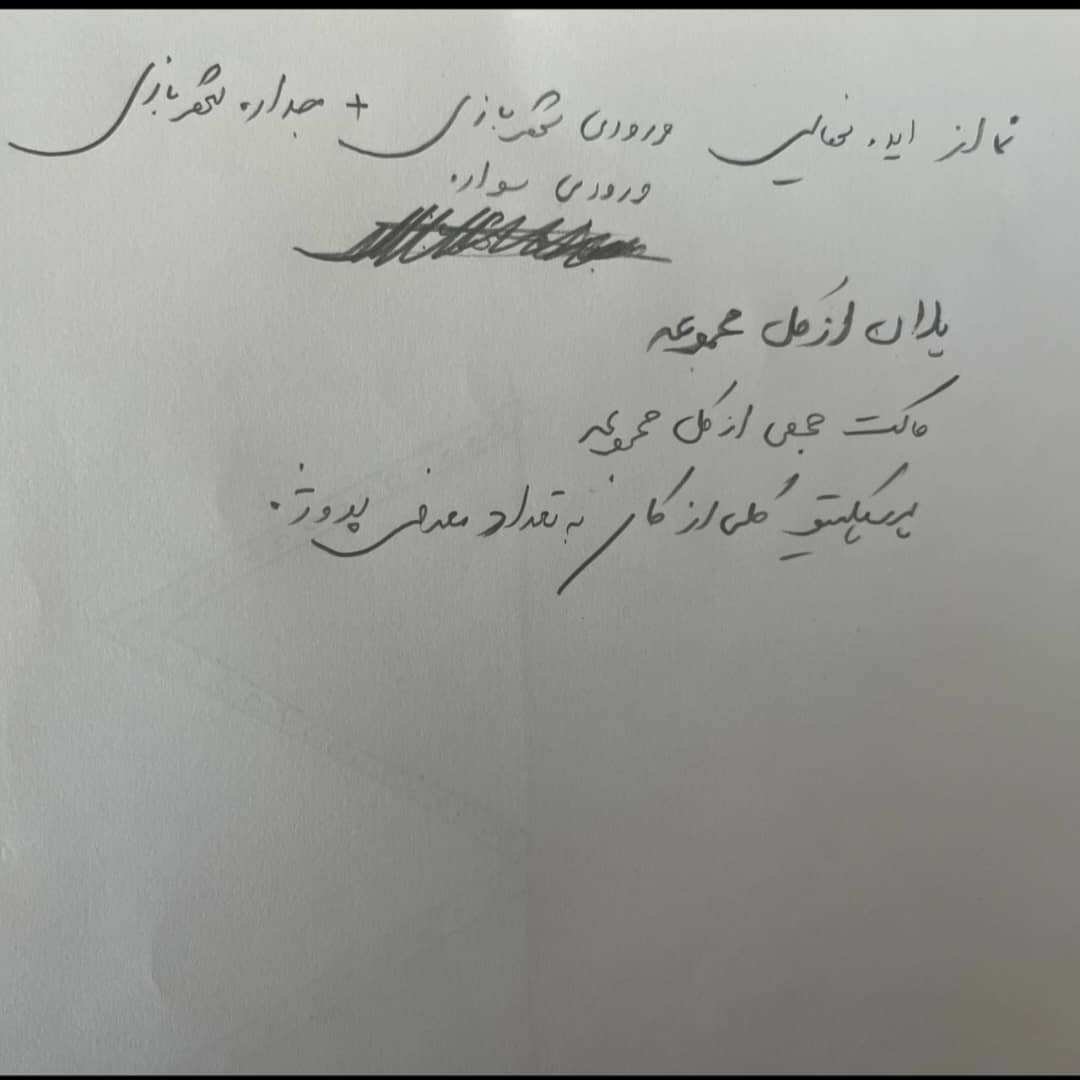 نما از ایده نهایی ورودی شهربازی + جداره شهربازی
ورودی سواره
پلان از کل مجموعه
ماکت حجمی از کل مجموعه
پرسپکتیو کلی از کار به تعداد معرفی پروژه.